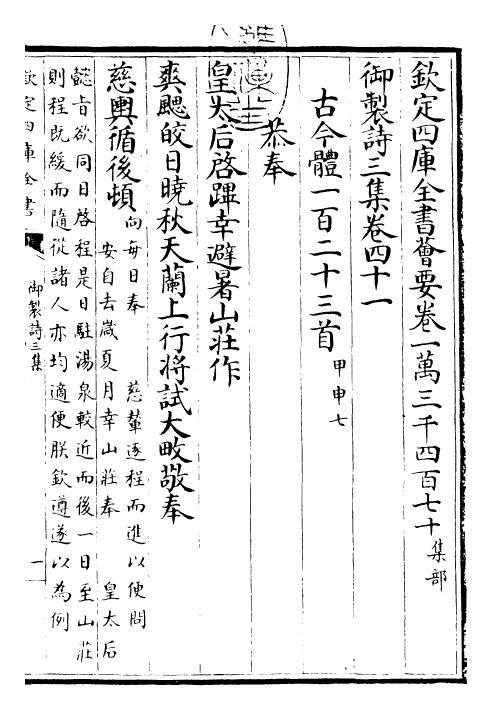 欽定四庫全書薈要卷一萬三千四百七十集部
御製詩三集卷四十一
古今體一百二十三首甲申七
恭奉
皇太后啓蹕幸避暑山莊作
爽颸皎日曉秋天蘭上行將試大畋敬奉
慈輿循後頓向每日奉慈輦逐程而進以便問
安自去嵗夏月幸山莊奉皇太后
懿旨欲同日啓程是日駐湯泉較近而後一日至山莊
則程既緩而隨從諸人亦均適便朕欽遵遂以為例
欽定四庫全書
御製詩三集
一